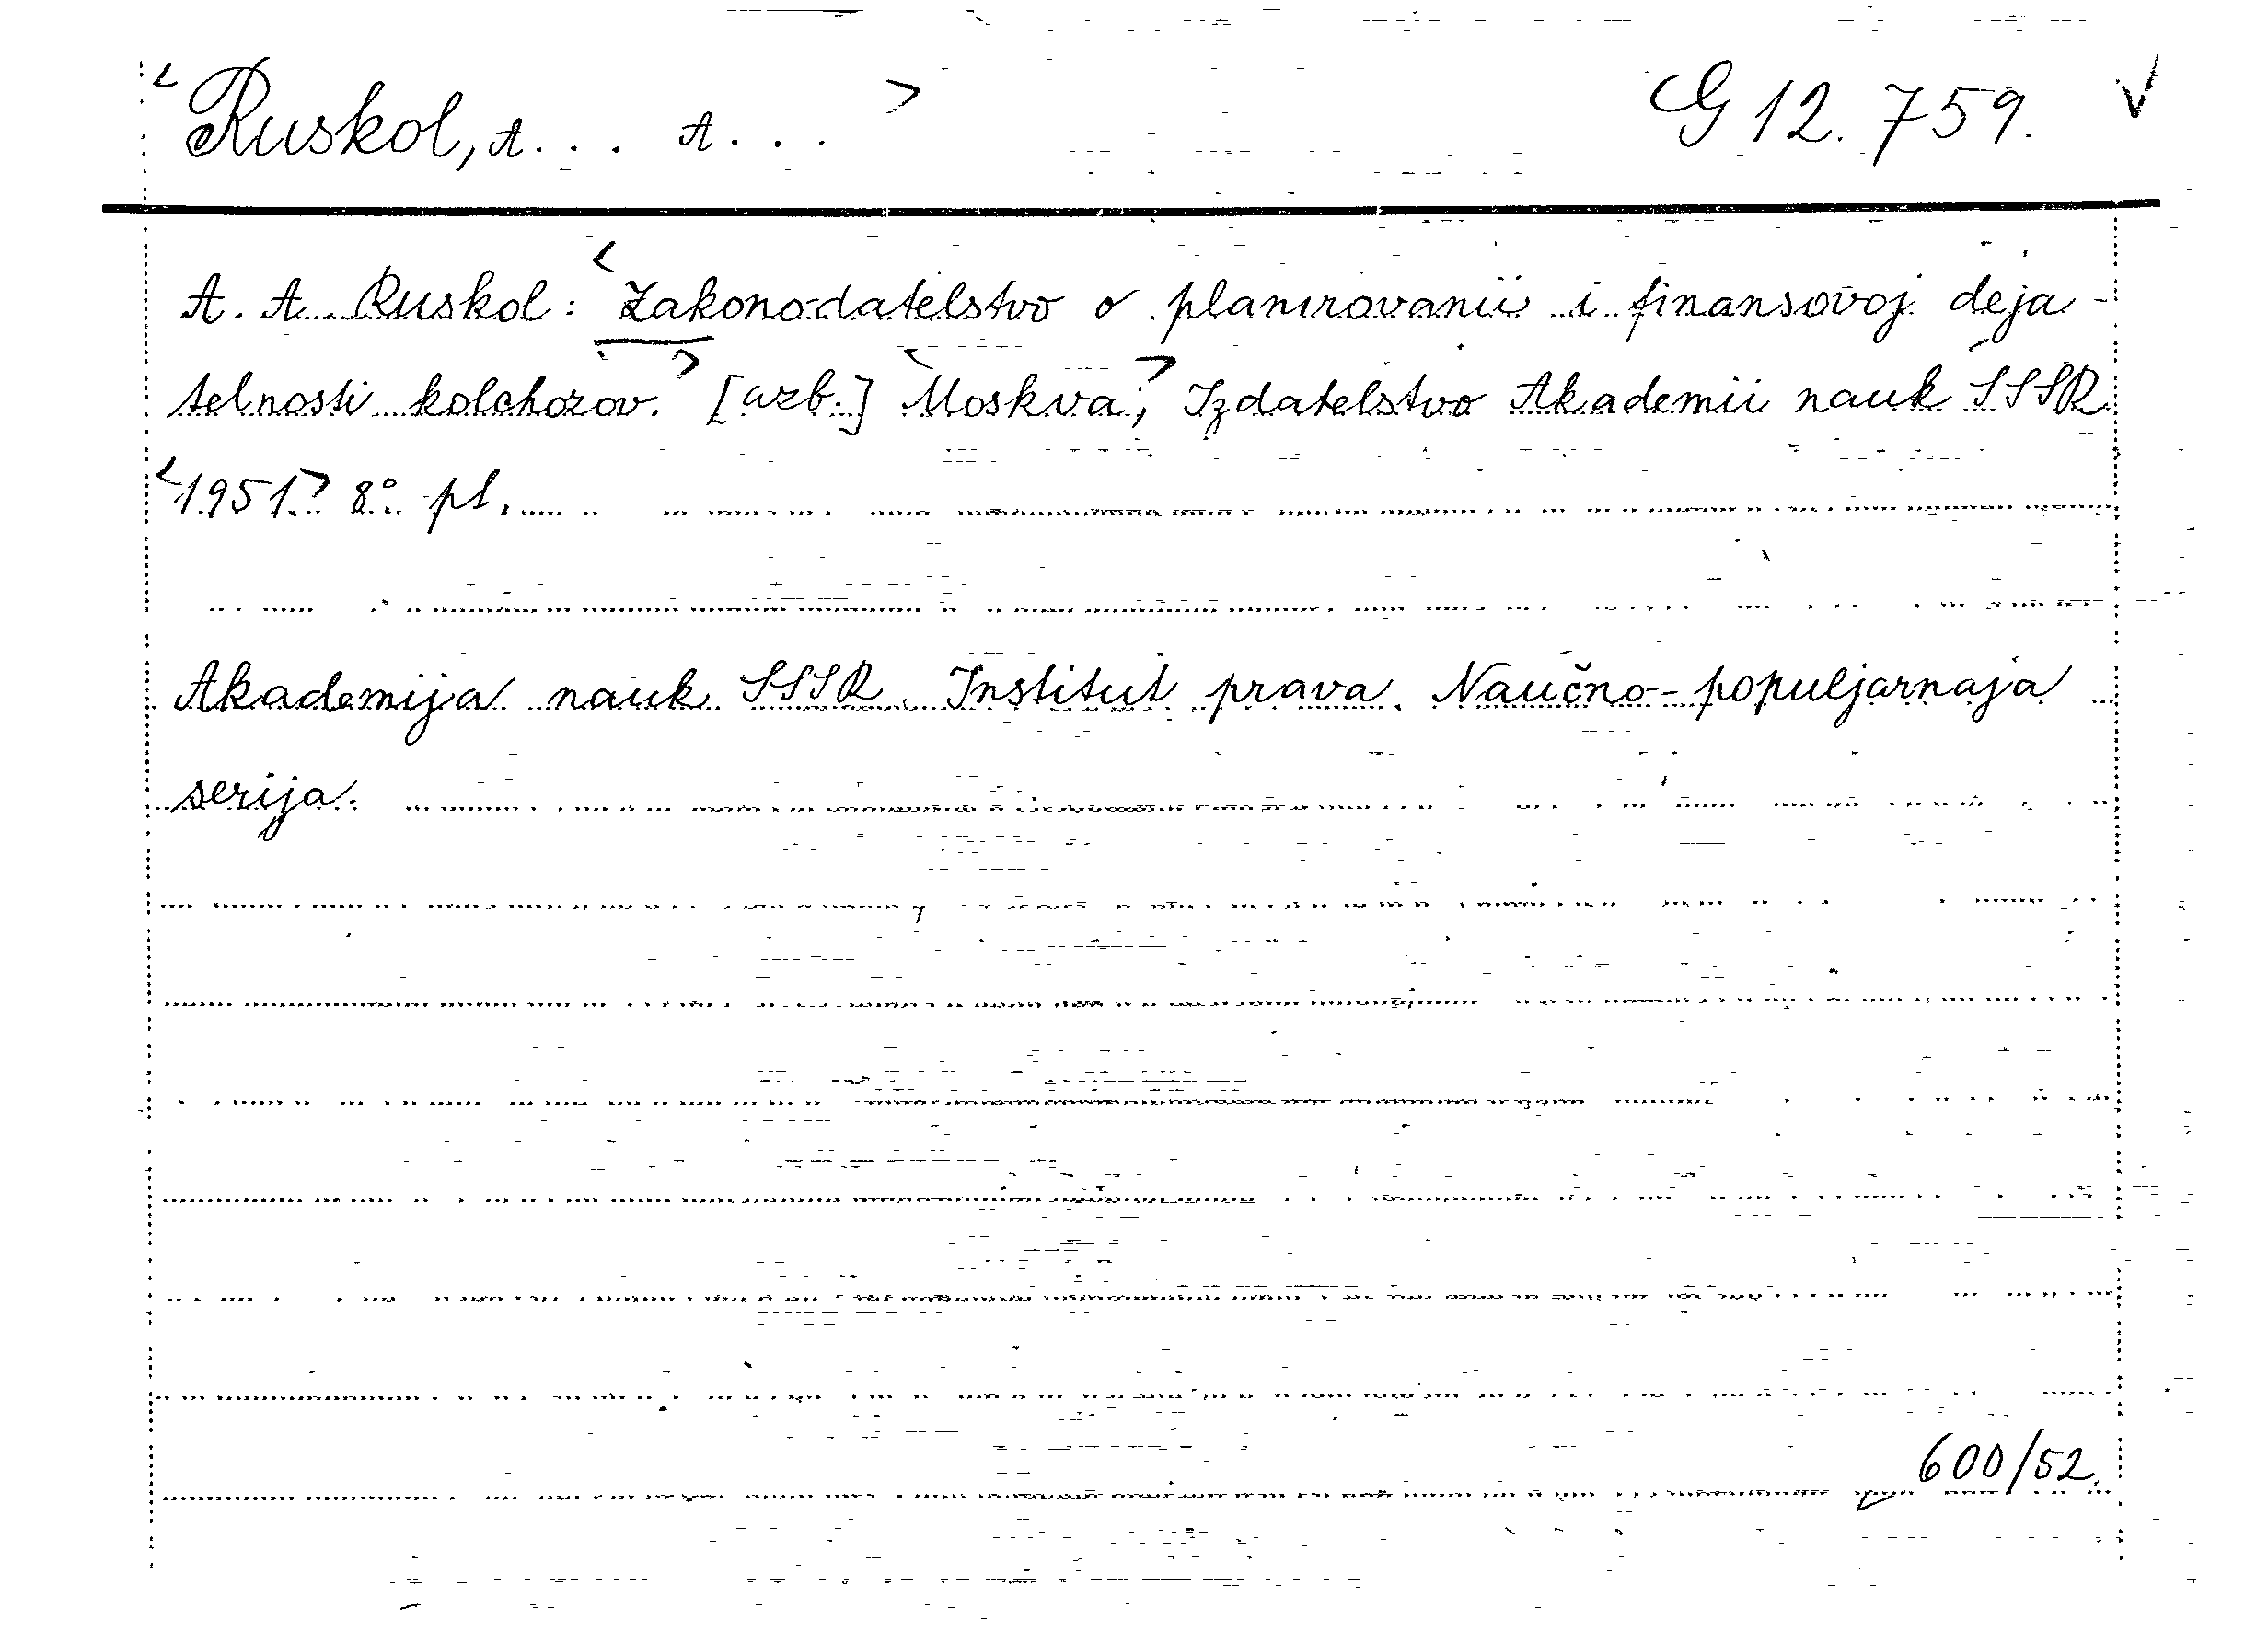 <Ruskol, A... A...> G 12.759. √
A. A. Ruskol: <Zakonodatelstvo o planirovanii i finansovoj deja-
telnosti kolchozov.> [azb.] <Moskva,> Izdatelstvo Akademii nauk SSSR
<1951.> 8° pl.
Akademija nauk SSSR. Institut prava. Naučno-populjarnaja
serija.
600/52.